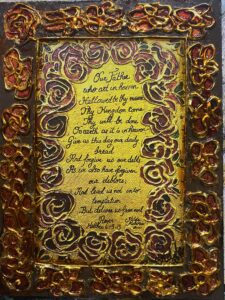 Our Father
who art in heaven
Hallowed be thy name
Thy Kingdom come
Thy will be done
On earth as it is in heaven
Give us this day our daily
bread
And forgive us our debts
As we also have forgiven
our debtors
And lead us not into
temptation
But deliver us from evil
Matthew 6:9-13